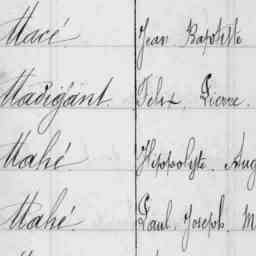 Macé. Jean Baptiste
Madigant. Felix, Pierre.
Mahé. Hippolyte, Aug
Mahé. Paul, Joseph, M